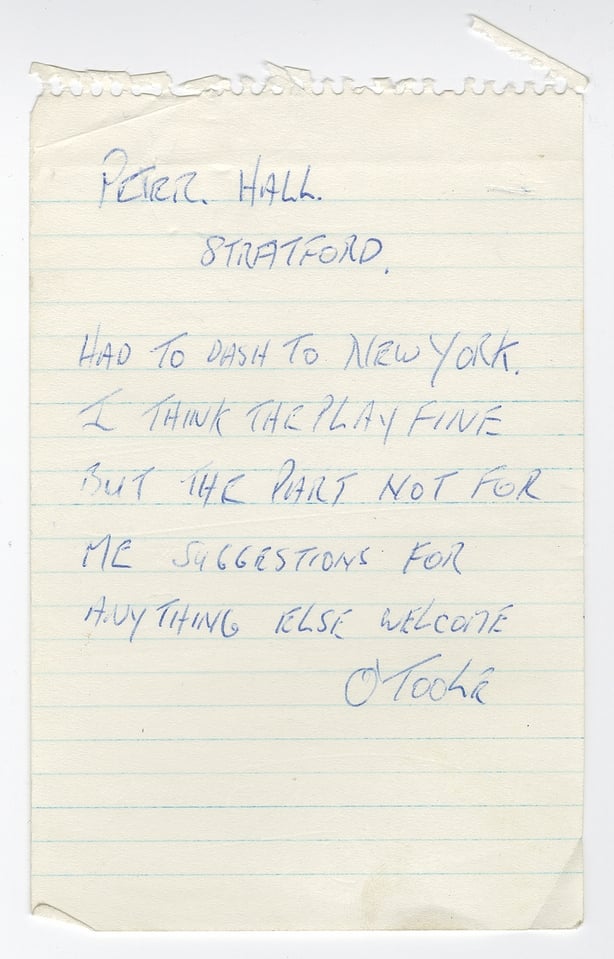 PETER. HALL.
STRATFORD.
HAD TO DASH TO NEW YORK.
I THINK THE PLAY FINE
BUT THE PART NOT FOR
ME SUGGESTIONS FOR
ANYTHING ELSE WELCOME
O'TOOLE